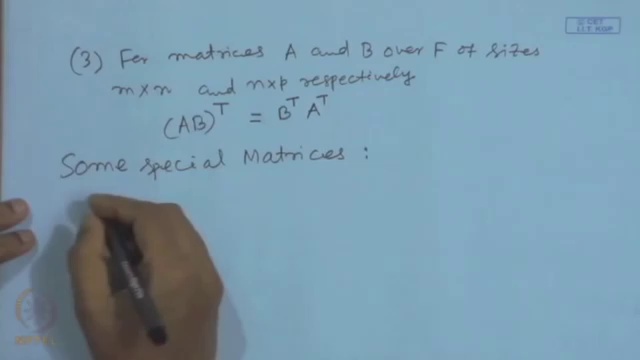 © CET
I.I.T. KGP
(3) For matrices A and B over F of sizes
m×n and n×p respectively
(AB)^T = B^T A^T
Some special Matrices :